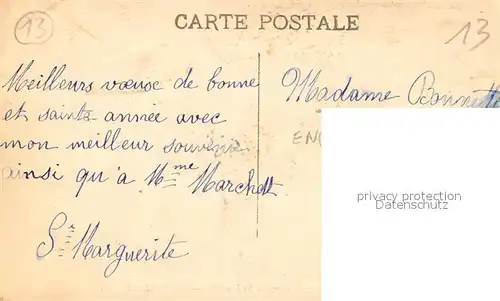 13
CARTE POSTALE
13
Meilleurs vœuse de bonne
et sainte année avec
mon meilleur souvenir
ainsi qu'à Mme
Sr Marguerite
Madame
privacy protection
Datenschutz